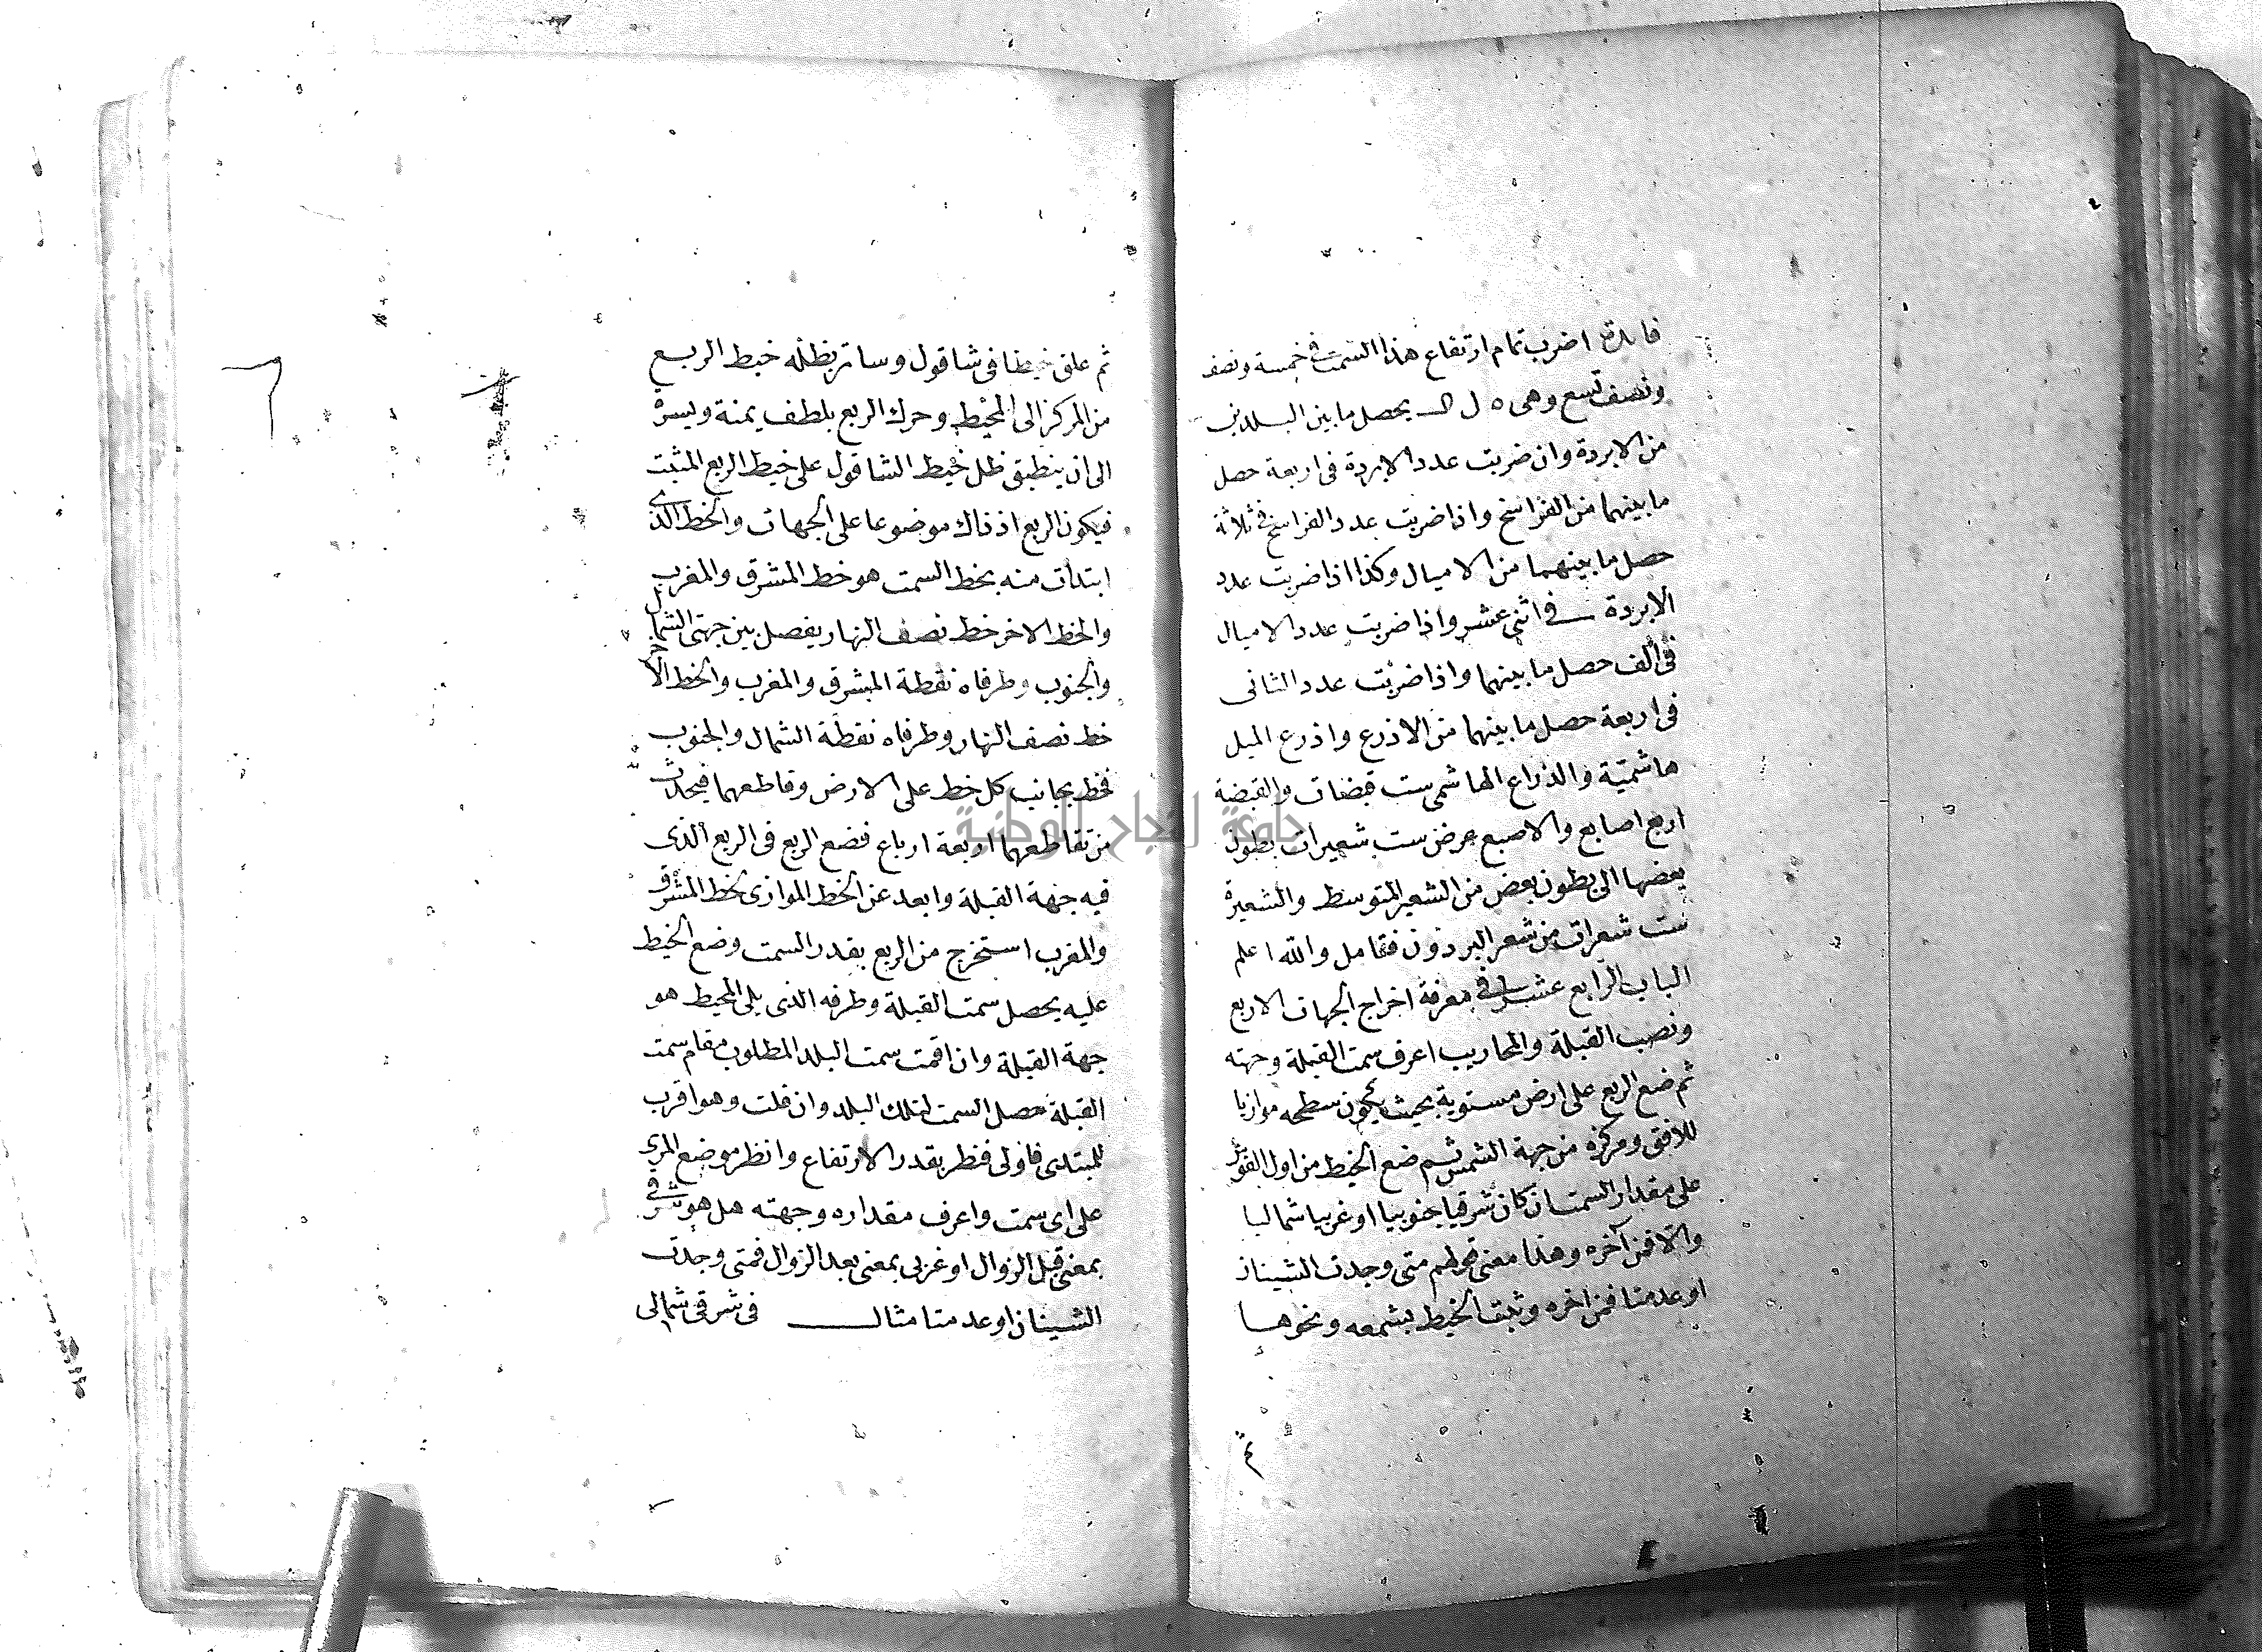 فايدة اضرب تمام ارتفاع هذا السمت فى خمسة ونصف
ونصف تسع وهى ه ل يحصل ما بين البلدين
من الابردة وان ضربت عدد الابردة فى اربعة حصل
ما بينهما من الفراسخ واذا ضربت عدد الفراسخ فى ثلاثة
حصل ما بينهما من الاميال وكذا اذا ضربت عدد
الابردة فى اثنى عشر واذا ضربت عدد الاميال
فى الف حصل ما بينهما واذا ضربت عدد الثانى
فى اربعة حصل ما بينهما من الاذرع واذرع الميل
هاشمية والذراع الهاشمى ست قبضات والقبضة
اربع اصابع والاصبع عرض ست شعيرات بطون
بعضها الى بطون بعض من الشعير المتوسط والشعيرة
ست شعرات من شعر البردون فتامل والله اعلم
الباب الرابع عشر فى معرفة اخراج الجهات الاربع
ونصب القبلة والمحاريب اعرف سمت القبلة وجهته
ثم ضع الربع على ارض مستوية بحيث يكون سطحه موازيا
للافق ومركزه من جهة الشمس ثم ضع الخيط من اول القوس
على مقدار السمت ان كان شرقيا جنوبيا او غربيا شماليا
والا فمن آخره وهذا معنى قولهم متى وجدت الشينان
او عدمتا فمن اخره وثبت الخيط بشمعه ونحوها
ثم
ثم علق خيطا فى شاقول وساتر بظله خيط الربع
من المركز الى المحيط وحرك الربع بلطف يمنة ويسرة
الى ان ينطبق ظل خيط الشاقول على خيط الربع المثبت
فيكون الربع اذ ذاك موضوعا على الجهات والخط الذى
ابتدأت منه بخط السمت هو خط المشرق والمغرب
والخط الاخر خط نصف النهار يفصل بين جهتى الشمال
والجنوب وطرفاه نقطة المشرق والمغرب والخط الاخر
خط نصف النهار وطرفاه نقطة الشمال والجنوب
فخط بجانب كل خط على الارض وقاطعهما فيحدث
من تقاطعهما اربعة ارباع فضع الربع فى الربع الذى
فيه جهة القبلة وابعد عن الخط الموازى لخط المشرق
والمغرب استخرج من الربع بقدر السمت وضع الخيط
عليه يحصل سمت القبلة وطرفه الذى يلى المحيط هو
جهة القبلة وان اقمت سمت البلد المطلوب مقام سمت
القبلة حصل السمت لتلك البلد وان قلت وهو اقرب
للمبتدى فاولى فنظر بقدر الارتفاع وانظر موضع المرى
على اى سمت واعرف مقداره وجهته هل هو شرقى
بمعنى قبل الزوال او غربى بمعنى بعد الزوال فمتى وجدت
الشينان او عدمتا مثال فى شرقى شمالى
جامعة النجاح الوطنية